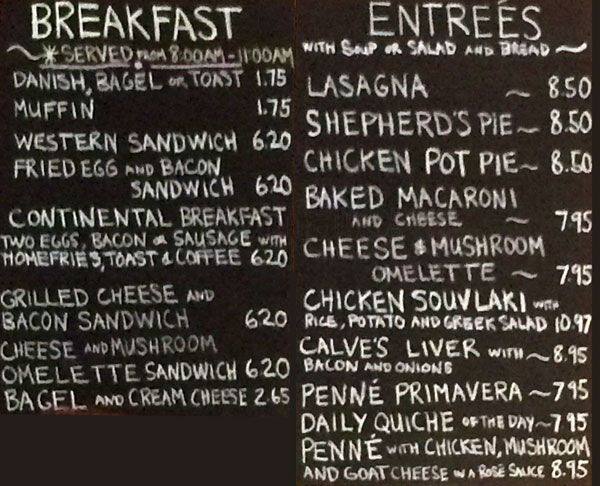 BREAKFAST
* SERVED FROM 8:00AM-11:00AM
DANISH, BAGEL OR TOAST 1.75
MUFFIN 1.75
WESTERN SANDWICH 6.20
FRIED EGG AND BACON
SANDWICH 6.20
CONTINENTAL BREAKFAST
TWO EGGS, BACON OR SAUSAGE WITH
HOMEFRIES, TOAST & COFFEE 6.20
GRILLED CHEESE AND
BACON SANDWICH 6.20
CHEESE AND MUSHROOM
OMELETTE SANDWICH 6.20
BAGEL AND CREAM CHEESE 2.65
ENTREÉS
WITH SOUP OR SALAD AND BREAD ~
LASAGNA ~ 8.50
SHEPHERD'S PIE ~ 8.50
CHICKEN POT PIE ~ 8.50
BAKED MACARONI
AND CHEESE ~ 7.95
CHEESE & MUSHROOM
OMELETTE ~ 7.95
CHICKEN SOUVLAKI WITH
RICE, POTATO AND GREEK SALAD 10.97
CALVE'S LIVER WITH ~ 8.95
BACON AND ONIONS
PENNÉ PRIMAVERA ~ 7.95
DAILY QUICHE OF THE DAY ~ 7.95
PENNÉ WITH CHICKEN, MUSHROOM
AND GOAT CHEESE IN A ROSÉ SAUCE 8.95